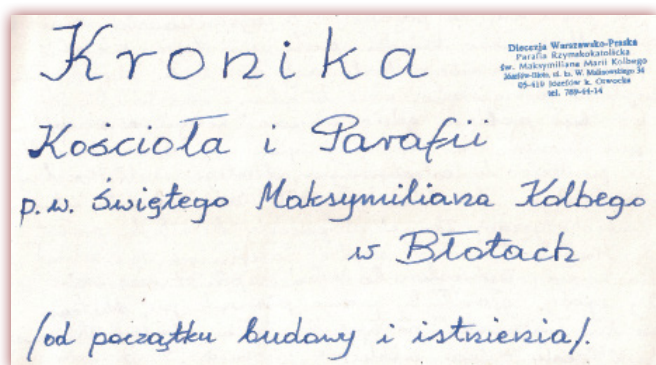 Kronika
Diecezja Warszawsko-Praska
Parafia Rzymskokatolicka
św. Maksymiliana Marii Kolbego
Józefów-Błota, ul. ks. W. Malinowskiego 34
05-410 Józefów k. Otwocka
tel. 789-44-14
Kościoła i Parafii
p.w. Świętego Maksymiliana Kolbego
w Błotach
/od początku budowy i istnienia/.